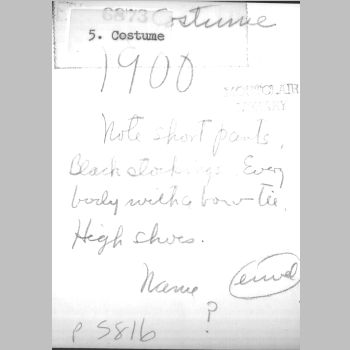 6873 Costume
5. Costume
1900
MONTCLAIR
LIBRARY
Note short pants,
Black stockings. Every
body with a bow tie.
High shoes.
Name
?
p 5816